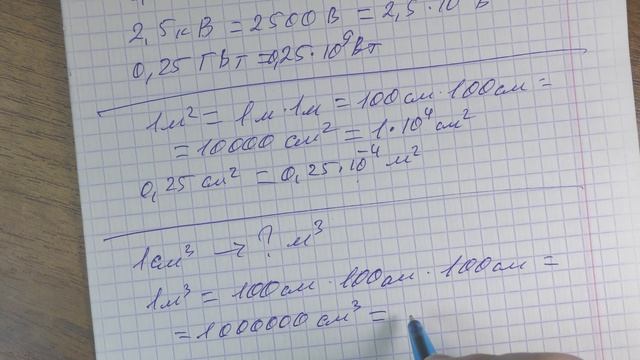 2,5 кВ = 2500 В = 2,5 · 10 В
0,25 ГВт = 0,25 · 10⁹ Вт
1 м² = 1 м · 1 м = 100 см · 100 см =
= 10000 см² = 1 · 10⁴ см²
0,25 см² = 0,25 · 10⁻⁴ м²
1 см³ → ? м³
1 м³ = 100 см · 100 см · 100 см =
= 1000000 см³ =